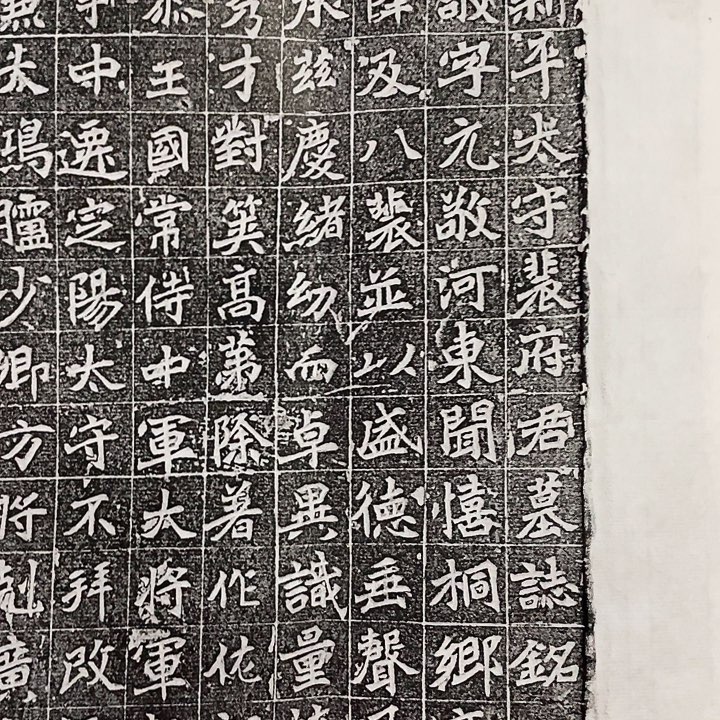 新平太守裴府君墓誌銘
敬字元敬河東聞憘桐鄉
降及八裴並以盛德垂聲
承茲慶緒幼而卓異識量
秀才對策高第除著作佐
恭王國常侍中軍大將軍
中遷定陽太守不拜改
兼太鴻臚少卿方將剋廣